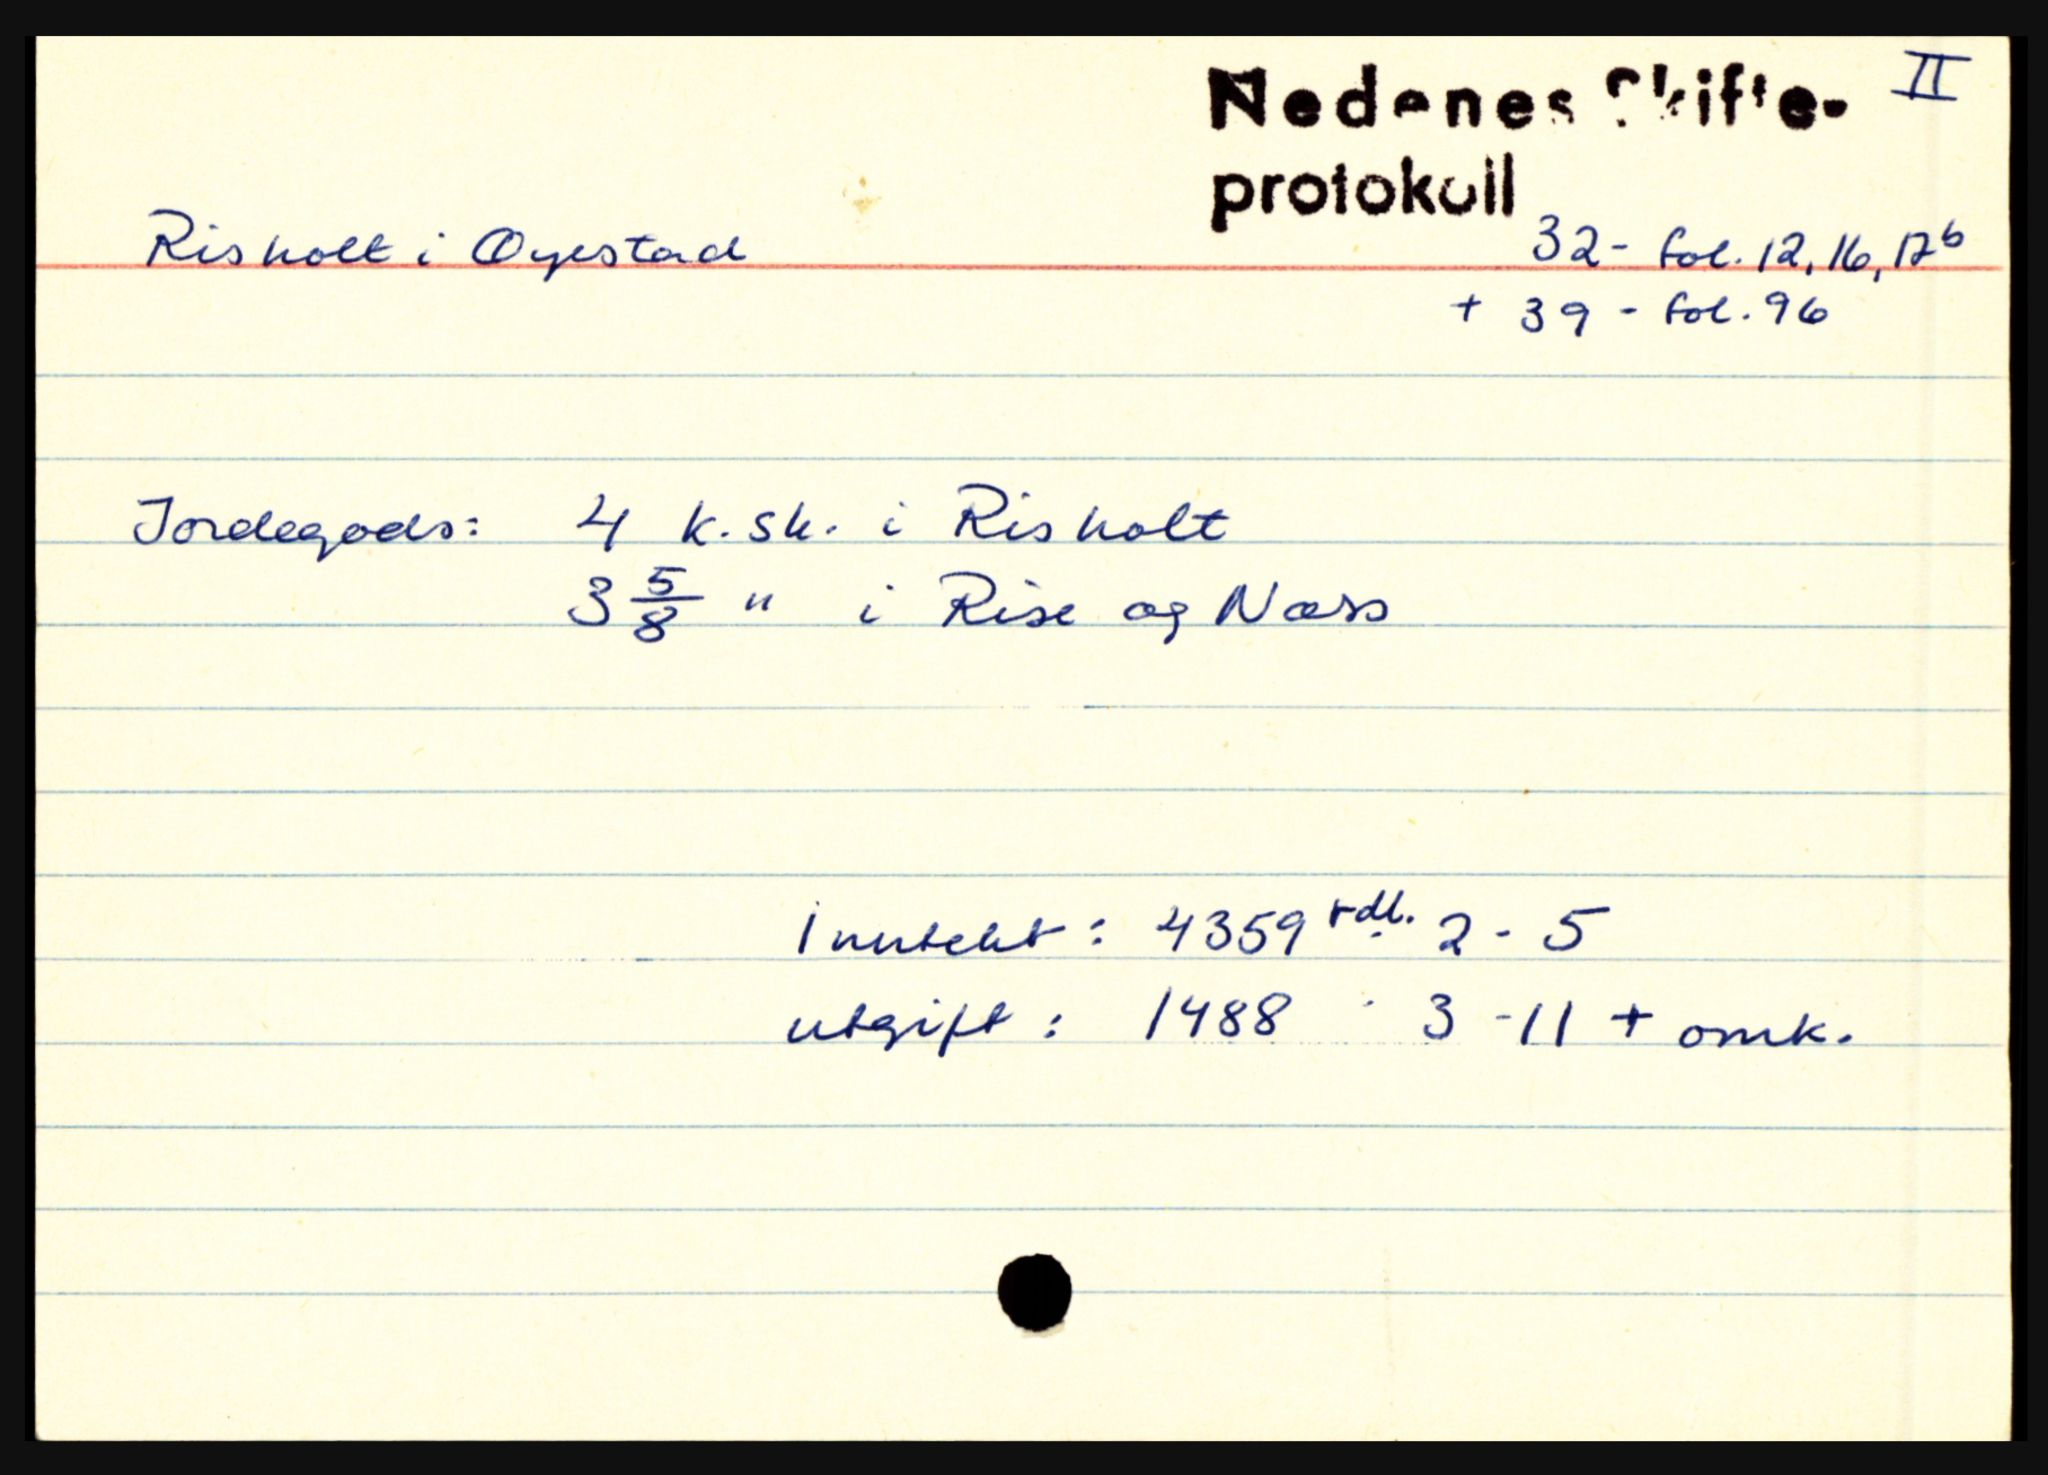 Nedenes Skifte- II
protokoll
Risholt i Øyestad 32- fol. 12, 16, 17b
+ 39 - fol. 96
Jordegods: 4 k. sk. i Risholt
3 5/8 " i Rise og Næss
Inntekt : 4359 rdl. 2 - 5
utgift : 1488 " 3 - 11 + omk.